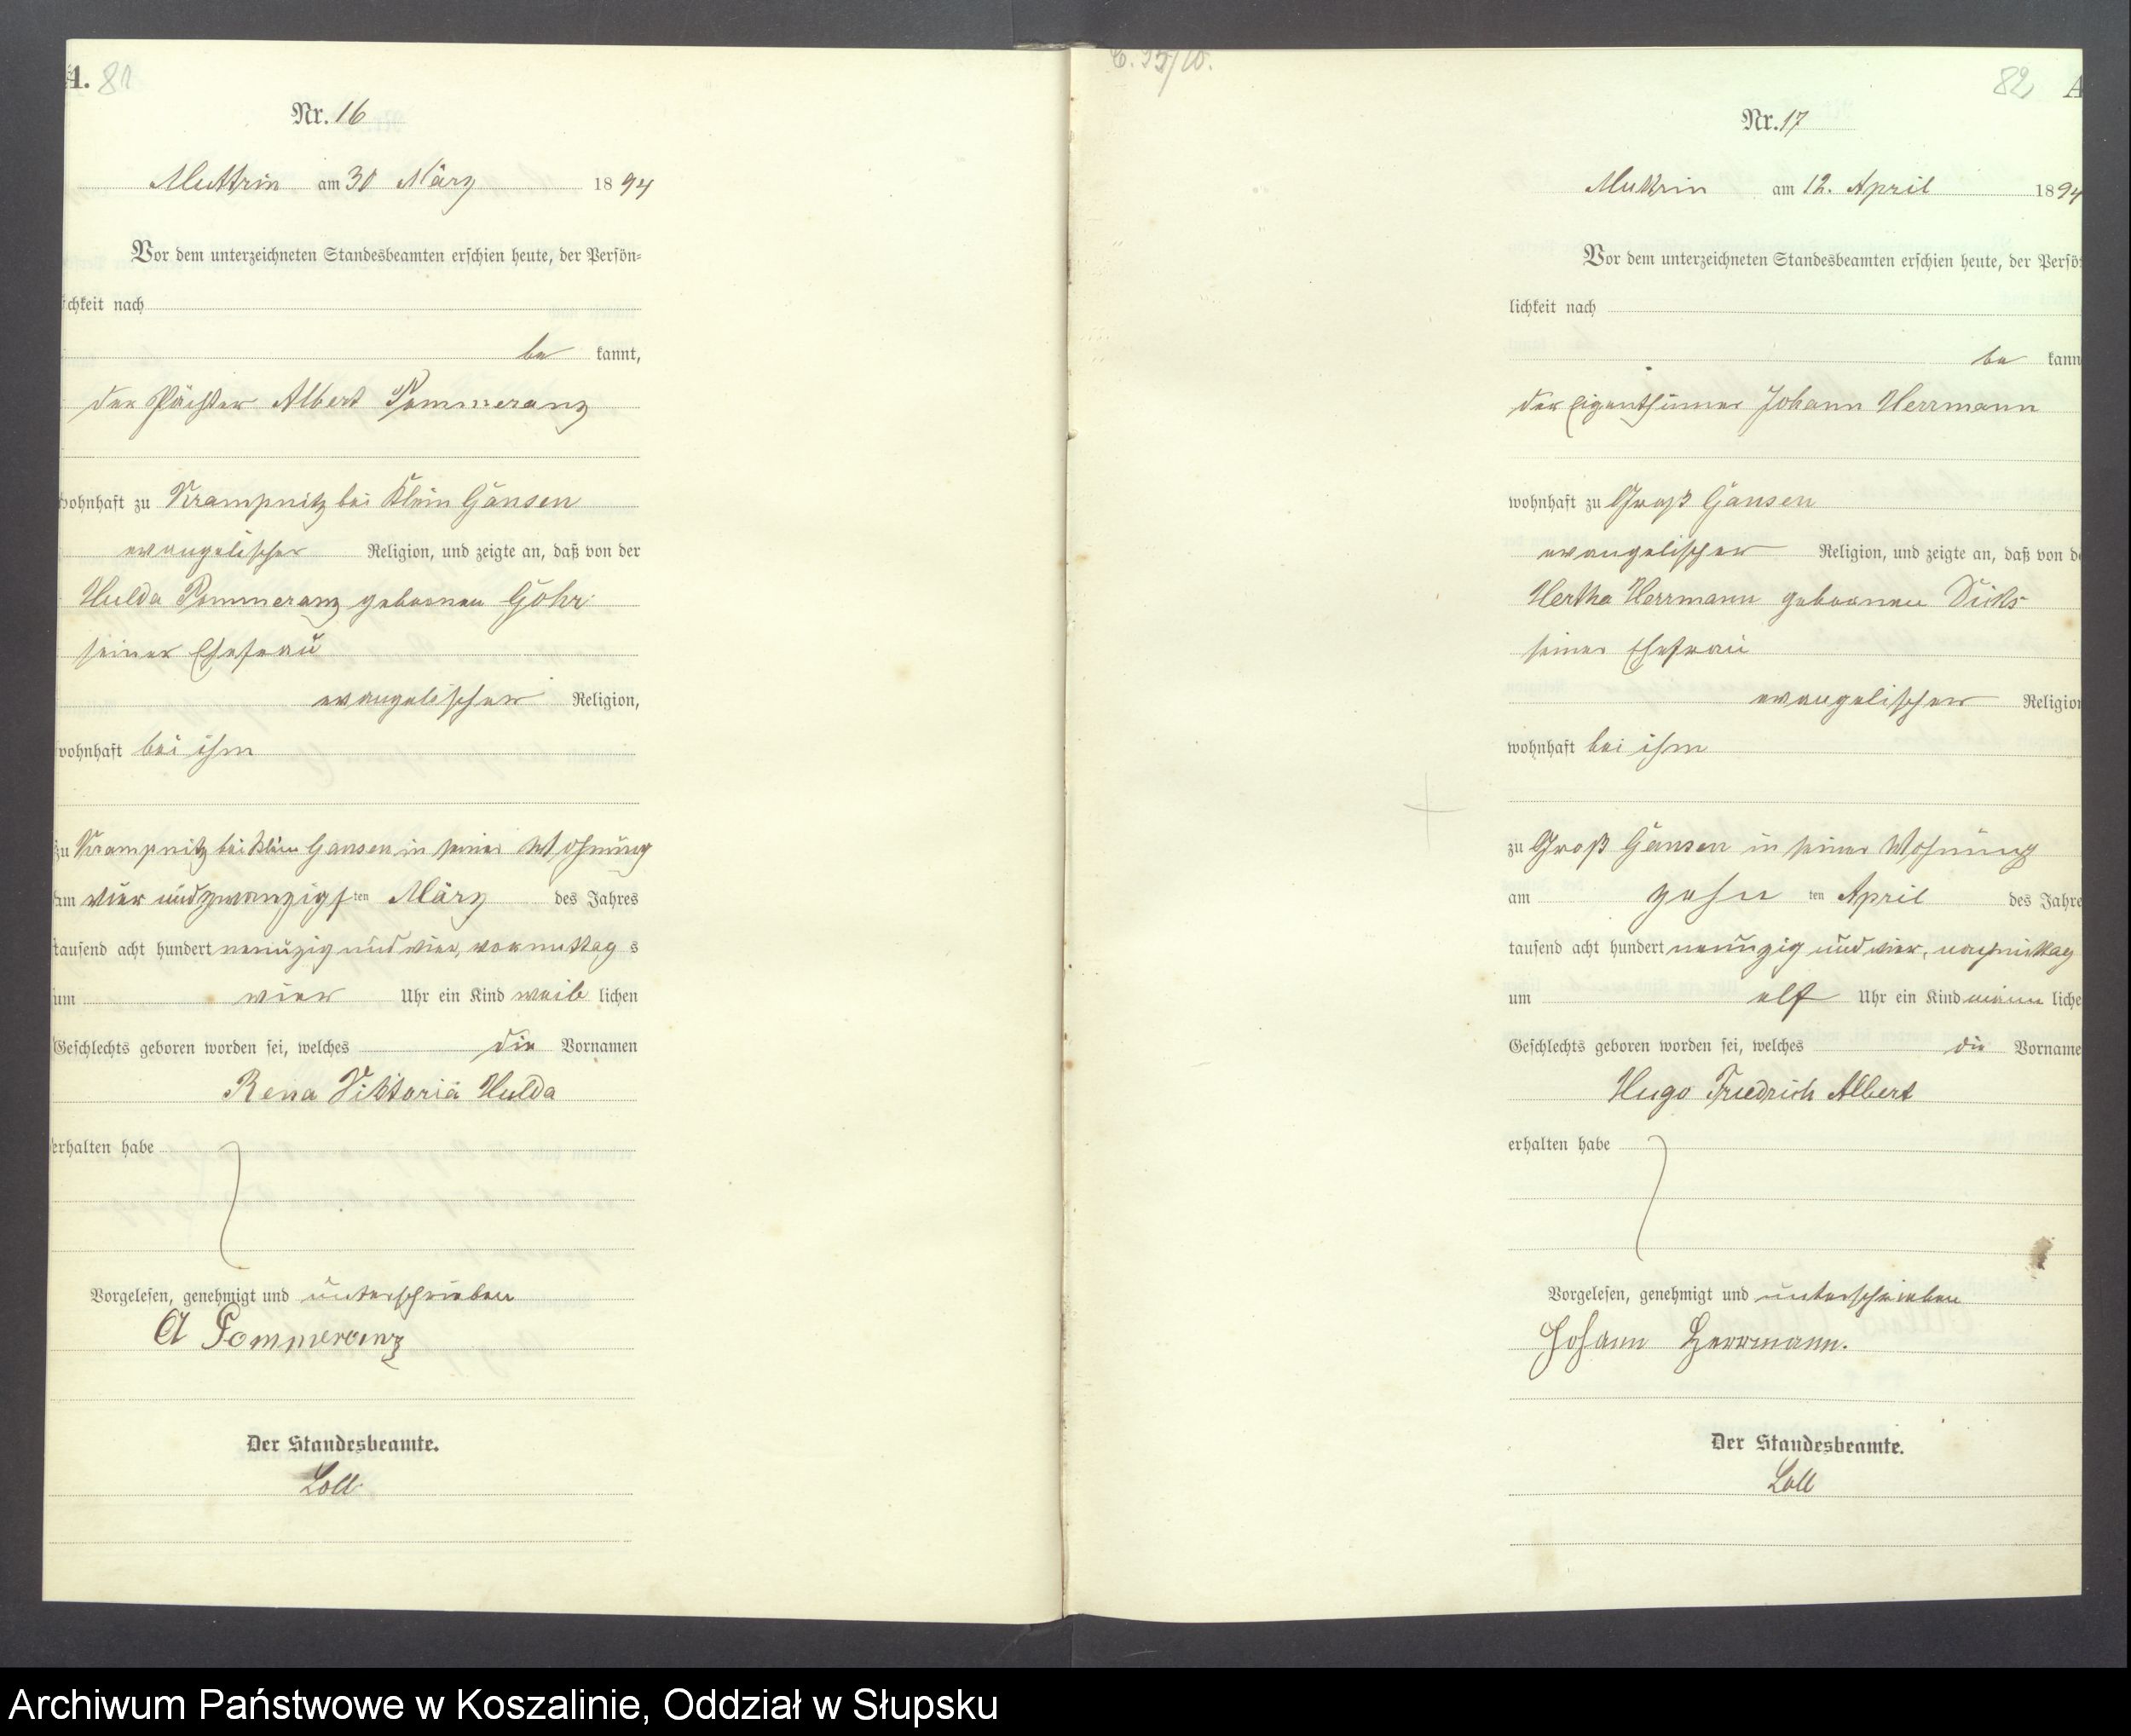 A. 81
Nr. 16
Muttrin am 30 März 1894
Vor dem unterzeichneten Standesbeamten erschien heute, der Persön-
ichkeit nach
be kannt,
der Pächter Albert Pommeranz
wohnhaft zu Krampnitz bei Klein Gansen
evangelischer Religion, und zeigte an, daß von der
Hulda Pommeranz geborenen Göhr
seiner Ehefrau
evangelischer Religion,
wohnhaft bei ihm
zu Krampnitz bei Klein Gansen in seiner Wohnung
am vier und zwanzigsten März des Jahres
tausend acht hundert neunzig und vier, vormittags
um vier Uhr ein Kind weiblichen
Geschlechts geboren worden sei, welches die Vornamen
Rena Viktoria Hulda
erhalten habe
Vorgelesen, genehmigt und unterschrieben
A Pommeranz
Der Standesbeamte.
Loll
82 A
Nr. 17
Muttrin am 12. April 1894
Vor dem unterzeichneten Standesbeamten erschien heute, der Persö
lichkeit nach
be kann
der Eigenthümer Johann Herrmann
wohnhaft zu Groß Gansen
evangelischer Religion, und zeigte an, daß von de
Hertha Herrmann geborenen
seiner Ehefrau
evangelischer Religion
wohnhaft bei ihm
zu Groß Gansen in seiner Wohnung
am zehn ten April des Jahre
tausend acht hundert neunzig und vier, nachmittag
um elf Uhr ein Kind männliche
Geschlechts geboren worden sei, welches die Vorname
Hugo Friedrich Albert
erhalten habe
Vorgelesen, genehmigt und unterschrieben
Johann Herrmann.
Der Standesbeamte.
Loll
Archiwum Państwowe w Koszalinie, Oddział w Słupsku